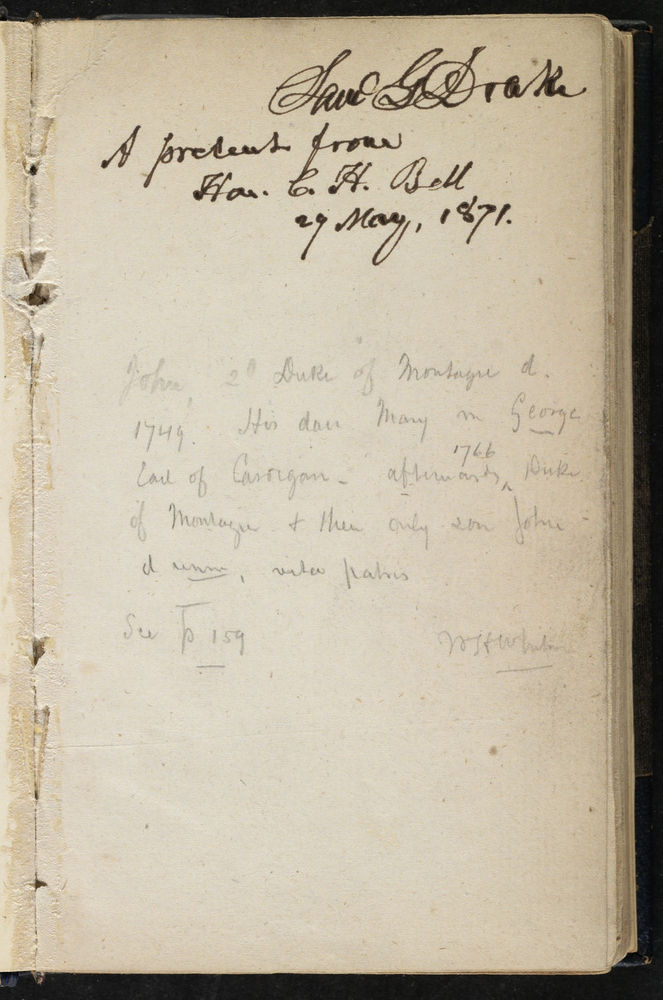 Saml G Drake
A present from
Hon. C. H. Bell
29 May, 1871.
John, 2d Duke of Montague d.
1749. His dau Mary m George
Earl of Cardigan - afterwards 1766 Duke
of Montague & their only son John
d unm, vita patris
See p 159